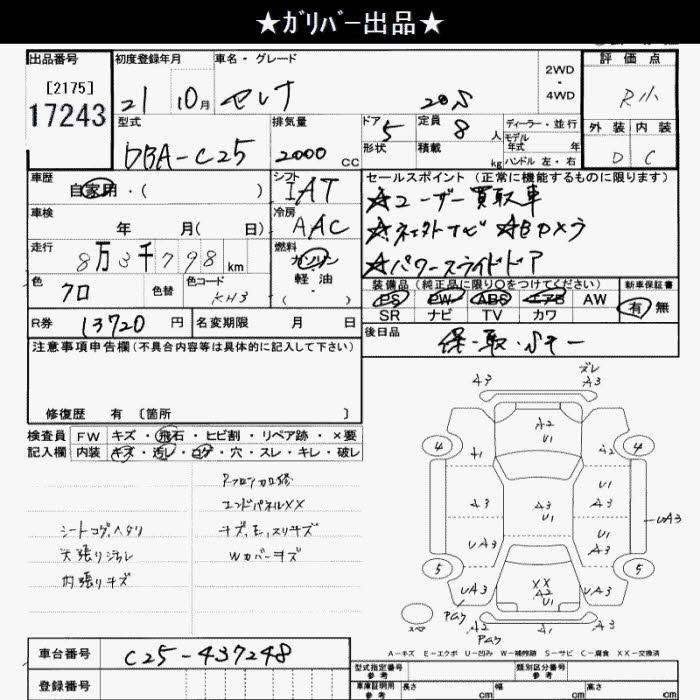 ★ｶﾞﾘﾊﾞｰ出品★
出品番号 初度登録年月 車名・グレード 2WD・4WD 評価点
[2175]
17243
21 10月 セレナ 20S R小
型式 排気量 ドア 5 定員 8人 ディーラー・並行 外装 内装
DBA-C25 2000cc 形状 積載 kg モデル年式 年 ハンドル 左・右 D C
車歴 自家用・( ) シフト IAT セールスポイント (正常に機能するものに限ります)
☆ユーザー買取車
車検 年 月( 日) 冷房 AAC
☆ネクストナビ ☆Bカメラ
走行 8万3千798km 燃料 ガソリン 軽油 ・( )
☆パワースライドドア
色 クロ 色替 色コード KH3
装備品 (純正品に限り○をつけてください) 新車保証書
PS PW ABS エアB AW 有 無
SR ナビ TV カワ
R券 13720円 名変期限 月 日
後日品 保・取・Sキー
注意事項申告欄(不具合内容等は具体的に記入して下さい)
修復歴 有 〔箇所 〕
検査員記入欄 FW キズ・飛石・ヒビ割・リペア跡・×要
内装 キズ・汚レ・コゲ・穴・スレ・キレ・破レ
エンドパネルXX
シートコゲ、ヘタリ
天張り汚レ
内張りキズ
Wカバーキズ
A3 ズレ A3
A2 U1
4 4
A1 A2 U1
A3 A3 U1 A3 U1
UA3
UA3 U1 A3
5 5
UA3 XX A2 U1 UA3
スペア
A1 A3
A－キズ E－エクボ U－凹み W－補修跡 S－サビ C－腐食 XX－交換済
車台番号 C25-437248
登録番号
型式指定番号 参考 類別区分番号 参考
車庫証明用 参考 長さ cm 幅 cm 高さ cm